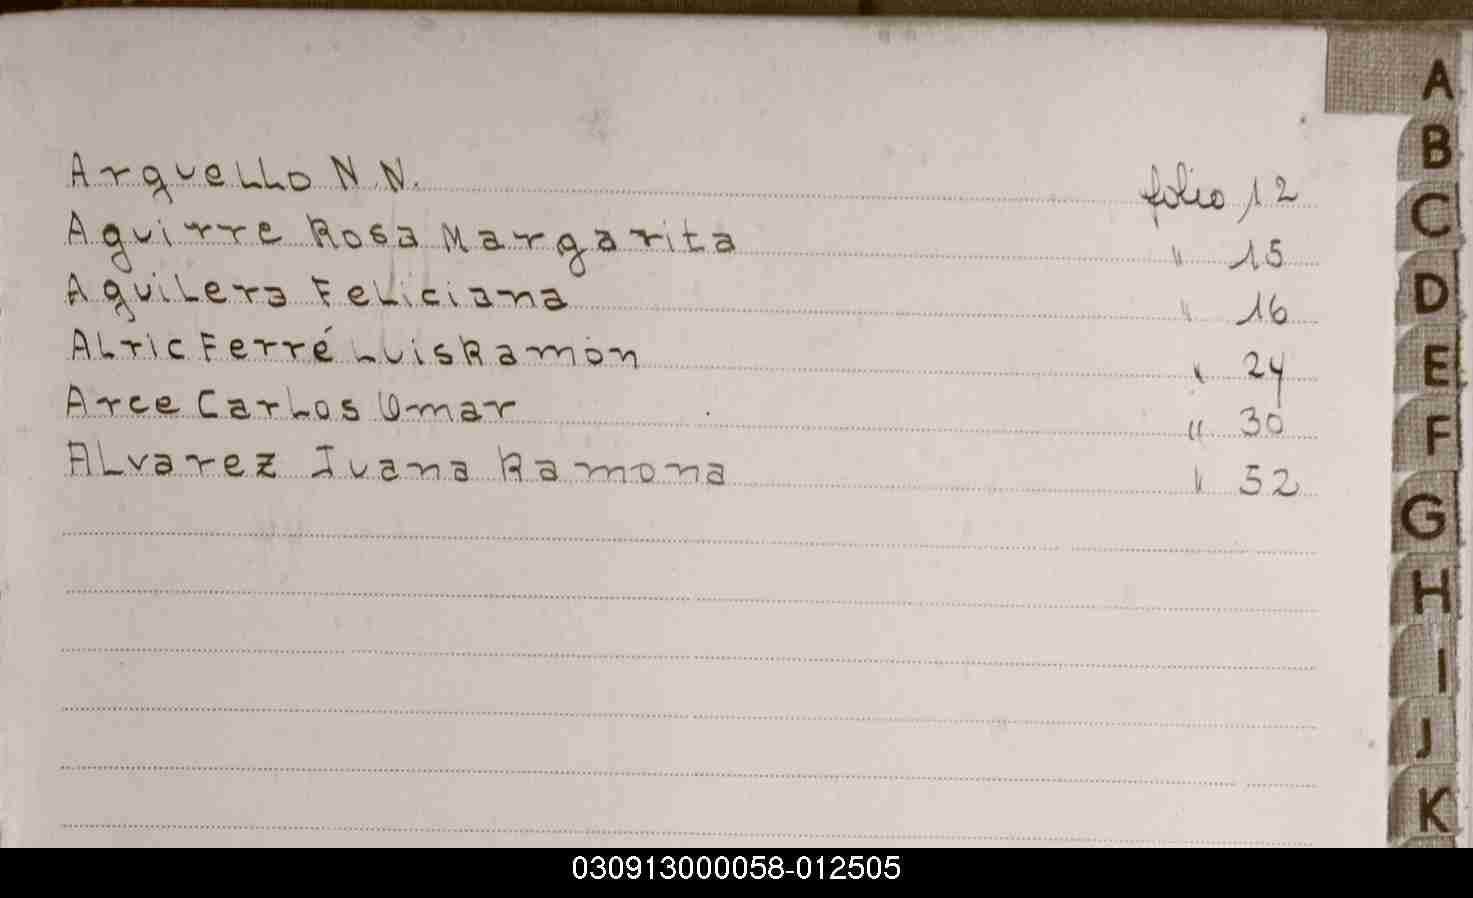 Arguello N.N. folio 12
Aguirre Rosa Margarita " 15
Aguilera Feliciana " 16
Alric Ferré Luis Ramón " 24
Arce Carlos Omar " 30
Alvarez Juana Ramona " 52
A
B
C
D
E
F
G
H
I
J
K
030913000058-012505